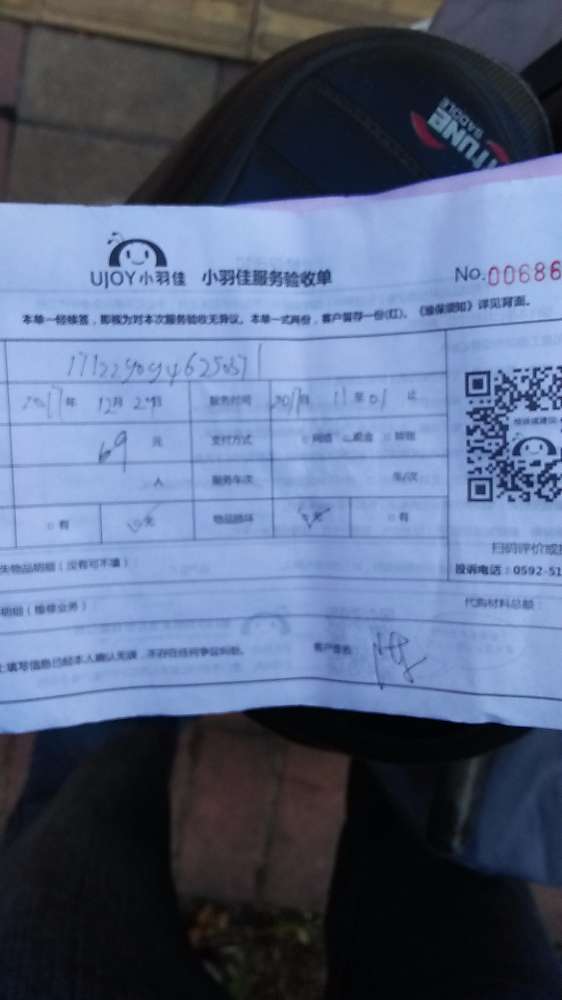 TUNE
SADDLE
UJOY小羽佳 小羽佳服务验收单 No.00686
本单一经修签，即视为对本次服务验收无异议。本单一式两份，客户留存一份(红)。《维保须知》详见背面。
2017年 12月 29日 服务时间 至
69 元 支付方式 网络 现金 转账
人 服务车次 车/次
有 无 物品损坏 无 有
失物品明细（没有可不填）
扫码评价或投
投诉电话：0592-51
明细（维修业务） 代购材料总额：
上填写信息已经本人确认无误，不存在任何争议纠纷。 客户签名：